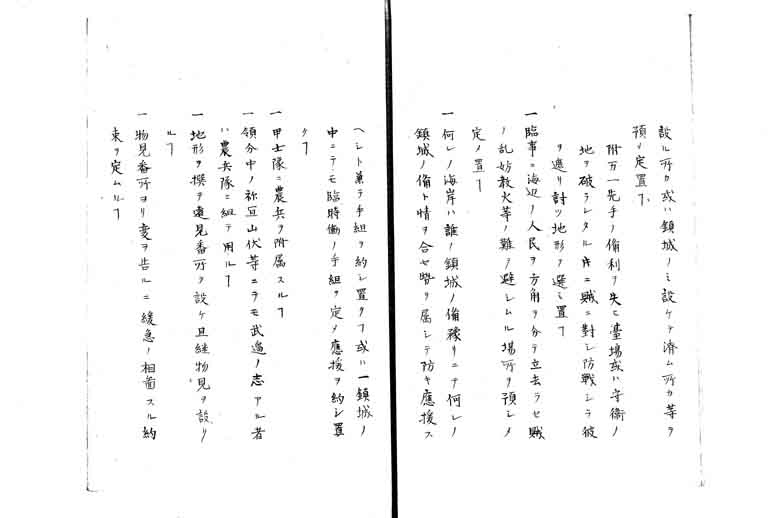 設ル所カ或ハ鎮城ノミ設ケテ済ム所カ等ヲ
預メ定置ヿ
附万一先手ノ備利ヲ失ヒ臺場或ハ守衛ノ
地ヲ破ラレタル時ニ賊ニ對シ防戦シテ彼
ヲ遮リ討ツ地形ヲ選ミ置ヿ
一臨事ニ海辺ノ人民ヲ方角ヲ分テ立去ラセ賊
ノ乱妨放火等ノ難ヲ避シムル場所ヲ預シメ
定メ置ヿ
一何レノ海岸ハ誰ノ鎮城ノ備豫リニテ何レノ
鎮城ノ備ト情ヲ合セ勢ヲ属シテ防キ應援ス
ヘシト兼テ手組ヲ約シ置クヿ或ハ一鎮城ノ
中ニテモ臨時働ノ手組ヲ定メ應援ヲ約シ置
クヿ
一甲士隊ニ農兵ヲ附属スルヿ
一領分中ノ祢宜山伏等ニテモ武邊ノ志アル者
ハ農兵隊ニ組テ用ルヿ
一地形ヲ撰ヲ遠見番所ヲ設ケ且継物見ヲ設ク
ルヿ
一物見番所ヨリ変ヲ告ルニ緩急ノ相啚スル約
束ヲ定ムルヿ